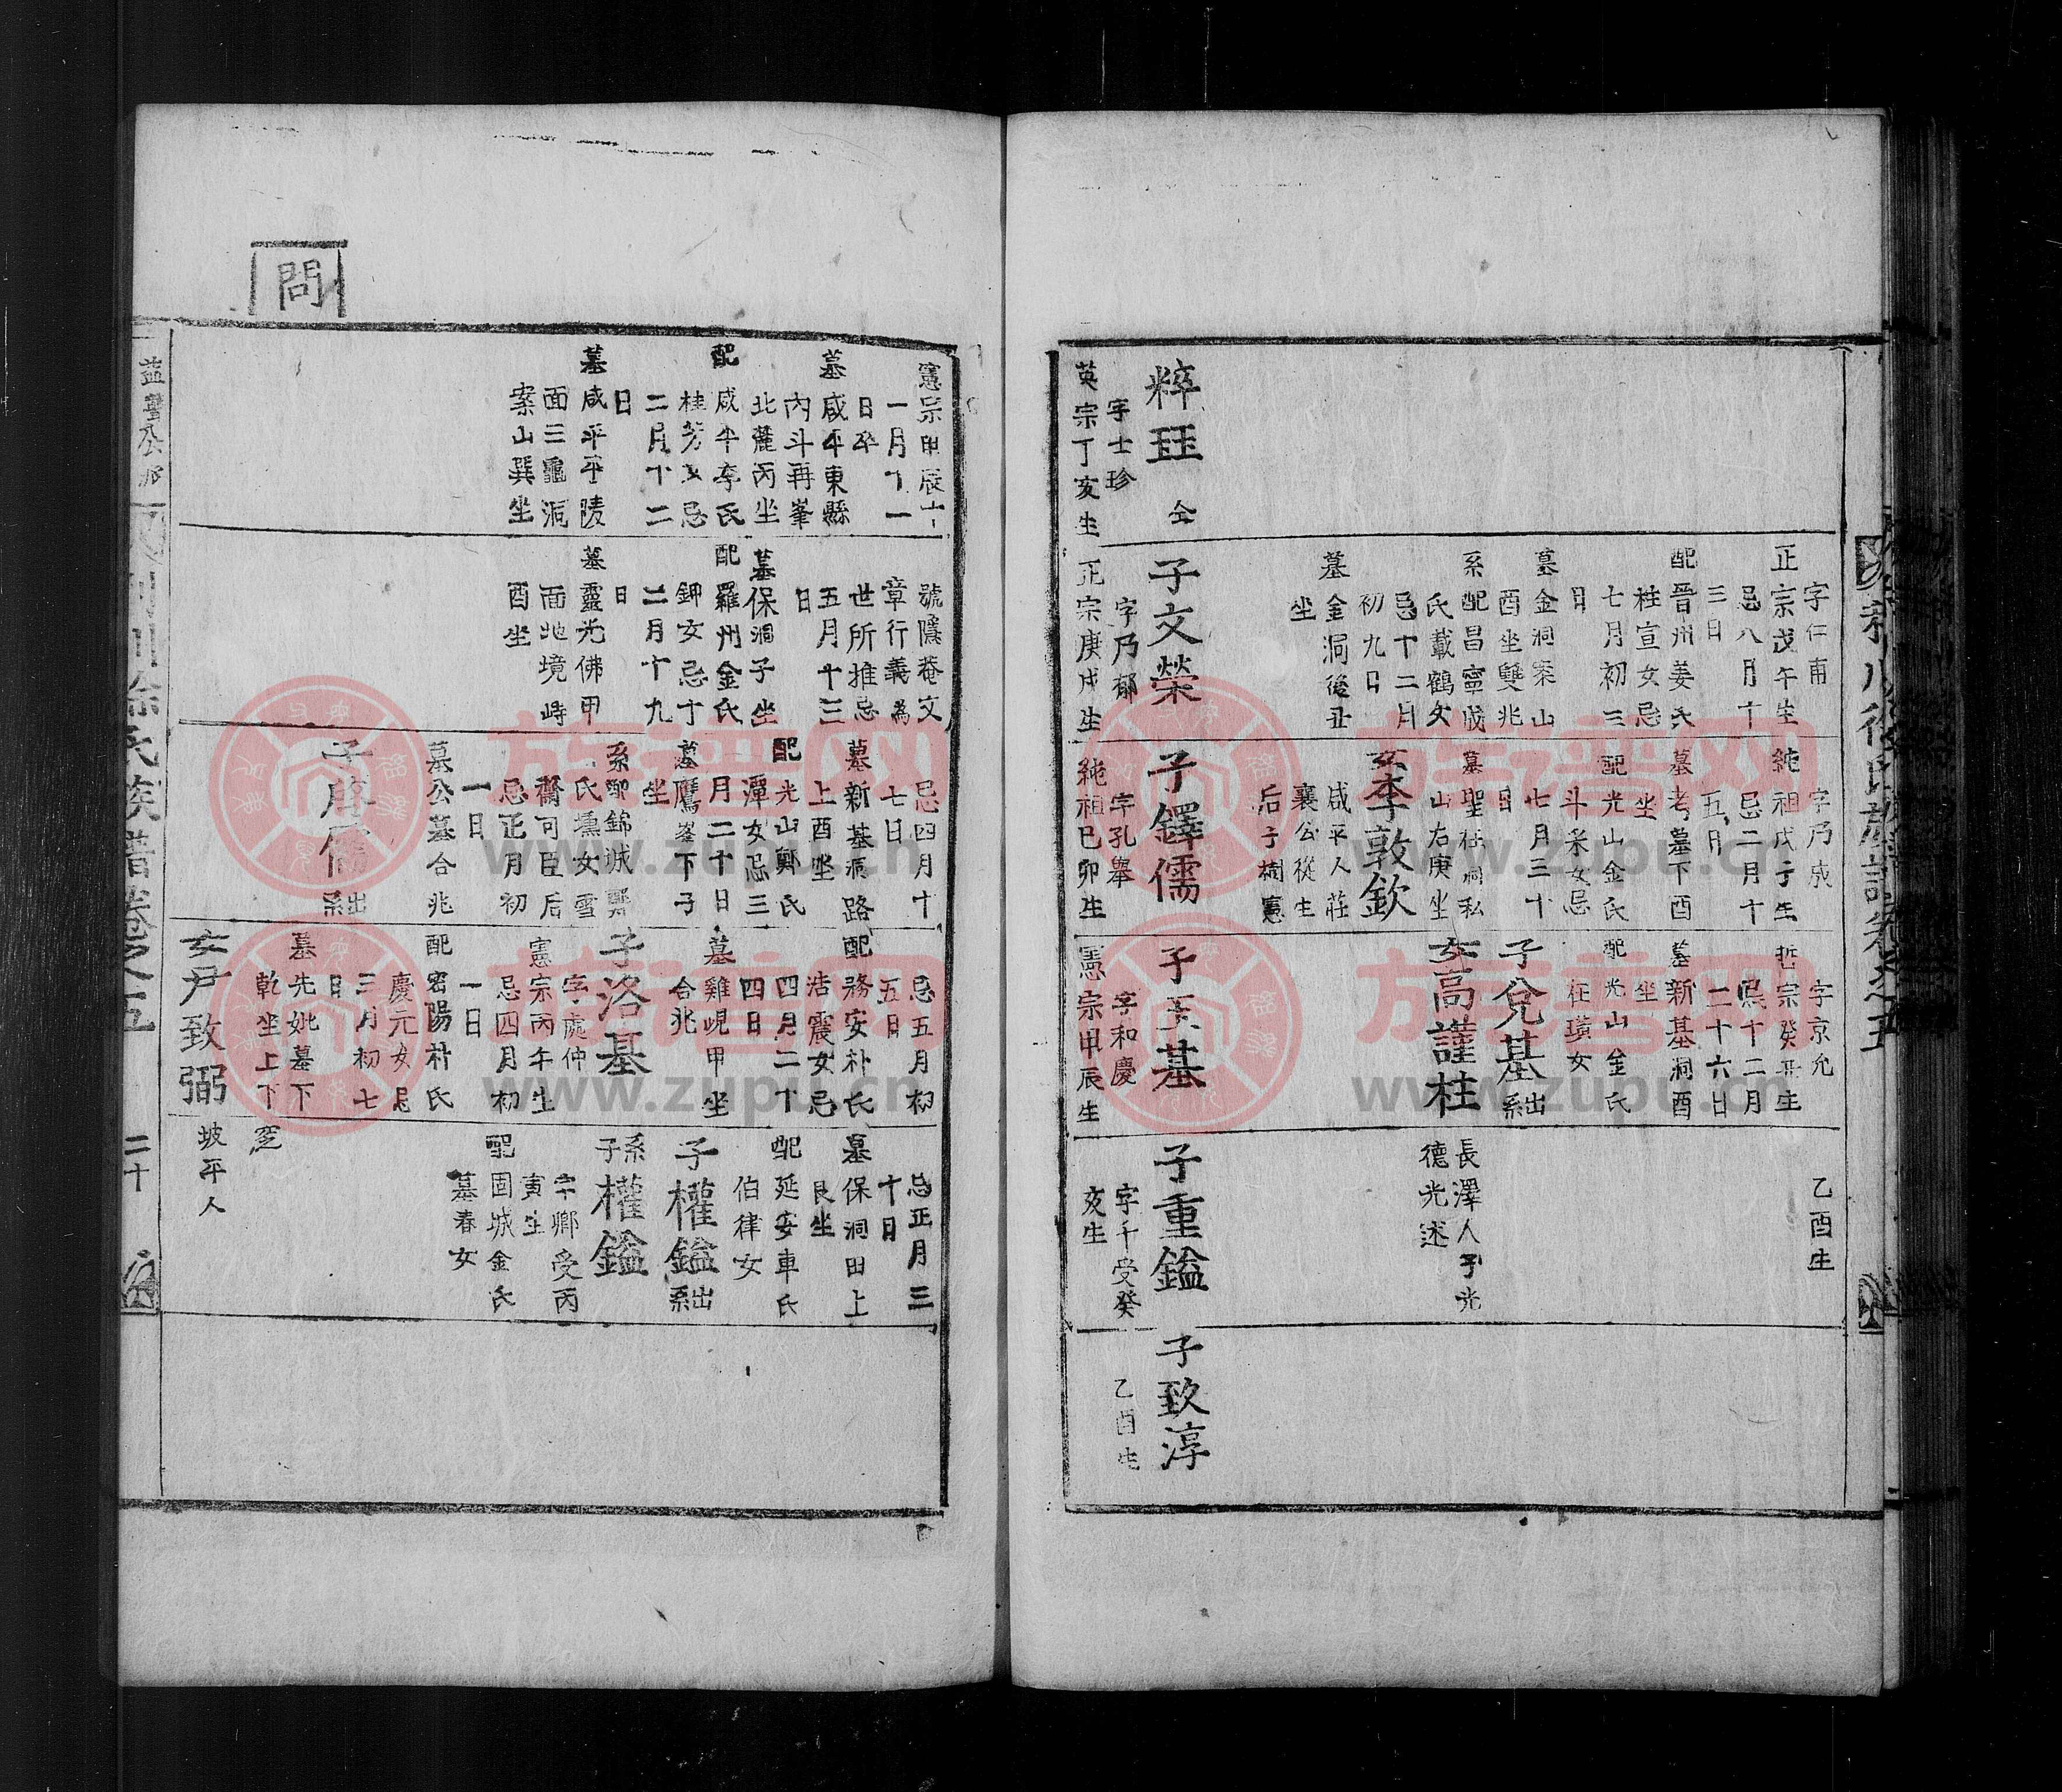 字仁甫
正宗戊午生
忌八月十
三日
配晉州姜氏
柱宣女忌
七月初三
日
墓金洞案山
酉坐雙兆
系配昌寧成
氏載鶴女
忌十二月
初九日
墓金洞後丑
坐
粹珏
仝
字士珍
英宗丁亥生
子文榮
字乃郁
正宗庚戌生
字乃成
純祖戊子生
忌二月十
五日
墓考墓下酉
坐
配光山金氏
斗采女忌
七月三十
日
山右庚坐
女李敦欽
咸平人莊
襄公從生
后子
子鐸儒
字孔舉
純祖己卯生
字京允
哲宗癸丑生
忌十二月
二十六日
墓新基洞酉
坐
配光山金氏
女
子兌基
出系
女高謹柱
子玉基
字和慶
憲宗甲辰生
乙酉生
長澤人子光
德光述
子重鎰
字千受癸
亥生
子致淳
乙酉生
問
憲宗甲辰十
一月十一
日卒
墓咸平東縣
內斗再峯
北麓丙坐
配咸平李氏
桂芳女忌
二月十二
日
墓咸平平陵
面三龜洞
案山巽坐
號隱菴文
章行義爲
世所推忌
五月十三
日
墓保洞子坐
配羅州金氏
鉀女忌十
二月十九
日
墓靈光佛甲
面地境峙
酉坐
忌四月十
七日
墓新基洞路
上酉坐
配光山鄭氏
潭女忌三
月二十日
墓鷹峯下子
坐
氏壎女雪
齋可臣后
忌正月初
一日
墓公墓合兆
出系
忌五月初
五日
配務安朴氏
浩震女忌
四月二十
四日
墓雞峴甲坐
合兆
子洛基
字處仲
憲宗丙午生
忌四月初
一日
配密陽朴氏
慶元女忌
三月初七
日
墓先妣墓下
乾坐上下
窆
女尹致弼
坡平人
忌正月三
十日
墓保洞田上
艮坐
配延安車氏
伯律女
子權鎰
出系
系子權鎰
字鄉受丙
寅生
配固城金氏
墓春女
氏族譜卷之五
二十